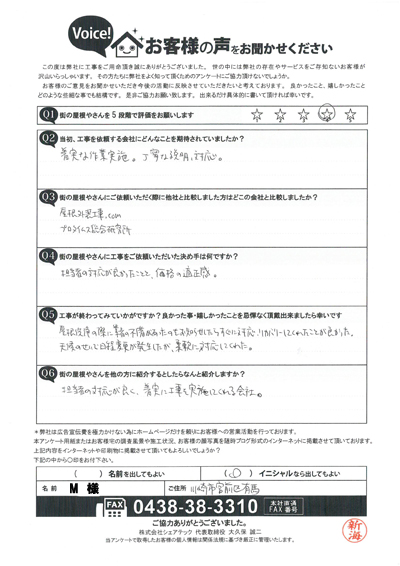 Voice!
お客様の声をお聞かせください
この度は弊社に工事をご用命頂き誠にありがとうございました。世の中には弊社の存在やサービスをご存知ないお客様が
沢山いらっしゃいます。その方たちに弊社をよく知って頂くためのアンケートにご協力頂けないでしょうか。
お客様のご意見をお聞かせいただき今後の活動に反映させていただきたいと考えております。良かったこと、嬉しかったこと
どのような些細な事でも結構です。是非ご協力お願い致します。出来るだけ具体的に書いて頂ければ幸いです。
Q1 街の屋根やさんを5段階で評価をお願いします ☆ ☆ ☆ ☆ ☆
Q2 当初、工事を依頼する会社にどんなことを期待されていましたか?
着実な作業実施。丁寧な説明、対応。
Q3 街の屋根やさんにご依頼いただく際に他社と比較しました方はどこの会社と比較しましたか?
屋根外装工事.com
プロタイムズ総合研究所
Q4 街の屋根やさんに工事をご依頼いただいた決め手は何ですか?
担当者の対応が良かったことと、価格の適正感。
Q5 工事が終わってみていかがですか?良かった事・嬉しかったことを忌憚なく頂戴出来ましたら幸いです
屋根修理の際に業者の不備があったのをお知らせしたらすぐに対応、リカバリーしてくれたことが良かった。
天候のせいで日程変更が発生したが、柔軟に対応してくれた。
Q6 街の屋根やさんを他の方に紹介するとしたらなんと紹介しますか?
担当者の対応が良く、着実に工事を実施してくれる会社。
*弊社は広告宣伝費を極力かけない為にホームページだけを頼りにお客様への営業活動を行っております。
本アンケート用紙またはお客様宅の調査風景や施工状況、お客様の顔写真を随時ブログ形式のインターネットに掲載させて頂いております。
上記内容をインターネットや印刷物に掲載させて頂いてもよろしいでしょうか?
下記の中から○印をお付下さい。
( )名前を出してもよい (○)イニシャルなら出してもよい
名前 M 様 ご住所 川崎市宮前区有馬
FAX 0438-38-3310 本社直通 FAX番号
ご協力ありがとうございました。
株式会社シェアテック 代表取締役 大久保 誠二
当アンケートで取得したお客様の個人情報は関係法規に基づき厳正に管理いたします。
新海